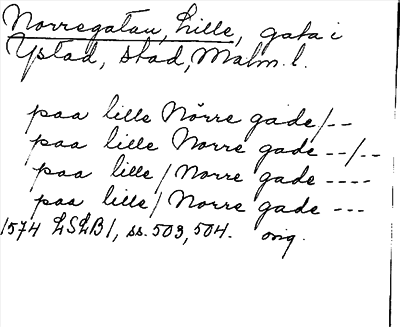 Norregatan, Lille, gata i
Ystad, stad, Malm. l.
paa lille Nörre gade/--
paa lille Norre gade --/--
paa lille/Norre gade ----
paa lille/Norre gade ---
1574 LSLB1, ss. 503, 504. orig.